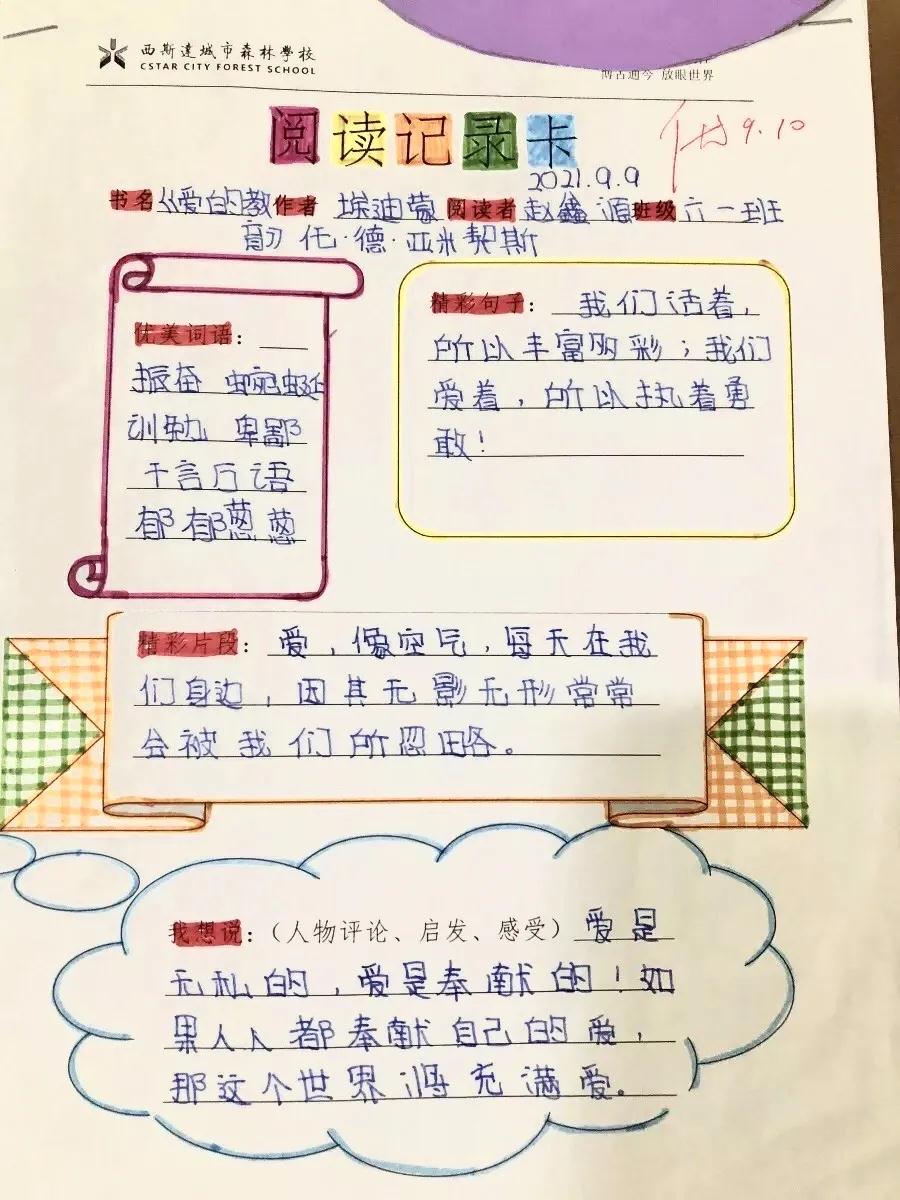 西斯達城市森林學校
CSTAR CITY FOREST SCHOOL
博古通今 放眼世界
阅读记录卡
9.10
2021.9.9
书名《爱的教 作者 埃迪蒙 阅读者 赵鑫源 班级 六一班
育》 托·德·亚米契斯
优美词语:
振奋 蜿蜒
训勉 卑鄙
千言万语
郁郁葱葱
精彩句子: 我们活着,
所以丰富多彩;我们
爱着,所以执着勇
敢!
精彩片段: 爱,像空气,每天在我
们身边,因其无影无形常常
会被我们所忽略。
我想说:(人物评论、启发、感受) 爱是
无私的,爱是奉献的!如
果人人都奉献自己的爱,
那这个世界将充满爱。